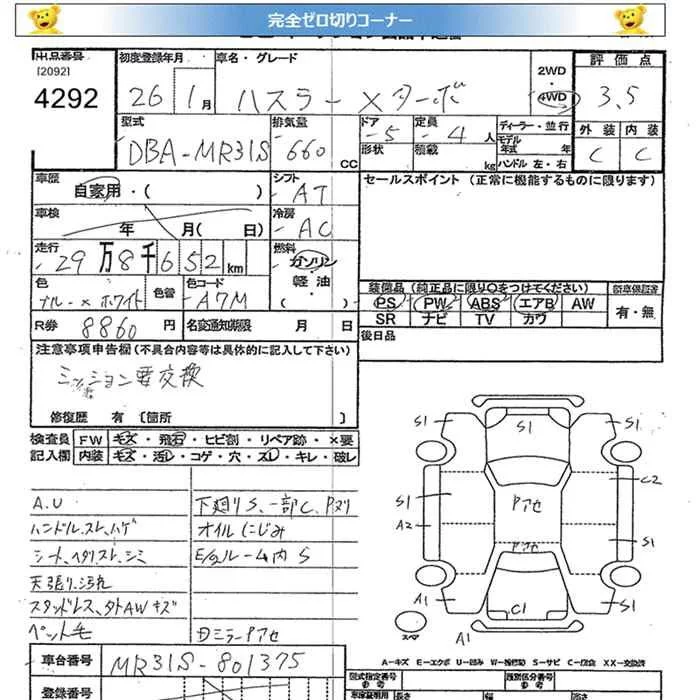 完全ゼロ切りコーナー
出品番号
[2092]
4292
初度登録年月
26 1月
車名・グレード
ハスラー Xターボ
2WD
4WD
評価点
3.5
外装 内装
C C
型式
DBA-MR31S
排気量
660 CC
ドア
5
形状
定員
4人
積載
kg
ディーラー・並行
モデル年式 年
ハンドル 左・右
車歴
自家用・( )
シフト
AT
セールスポイント (正常に機能するものに限ります)
車検
年 月( 日)
冷房
AC
走行
29万8千652km
燃料
ガソリン
軽油
( )
色
パール-Xホワイト
色替
色コード
A7M
装備品 (純正品に限り○をつけてください)
PS PW ABS エアB AW
SR ナビ TV カワ
新車保証書
有・無
R券
8860円
名変通知期限 月 日
後日品
注意事項申告欄(不具合内容等は具体的に記入して下さい)
ミッション要交換
修復歴 有 〔箇所 〕
検査員記入欄
FW キズ・飛石・ヒビ割・リペア跡・×要
内装 キズ・汚レ・コゲ・穴・スレ・キレ・破レ
A.U
ハンドル.スレ.ハゲ
シート.ヘタリ.スレ.シミ
天張り.汚れ
スタッドレス、夕トAWキズ
ペット毛
下廻りS、一部C、Pヌリ
オイルにじみ
E/gルーム内 S
Dミラー Pアセ
S1
S1
S1
C2
S1
Pアセ
A2
S1
Pアセ
A1
C1
S1
スペア
A1
A-キズ E-エクボ U-凹み W-補修跡 S-サビ C-腐食 XX-交換済
車台番号
MR31S-801375
登録番号
型式指定番号
類別区分番号
長さ
幅
高さ